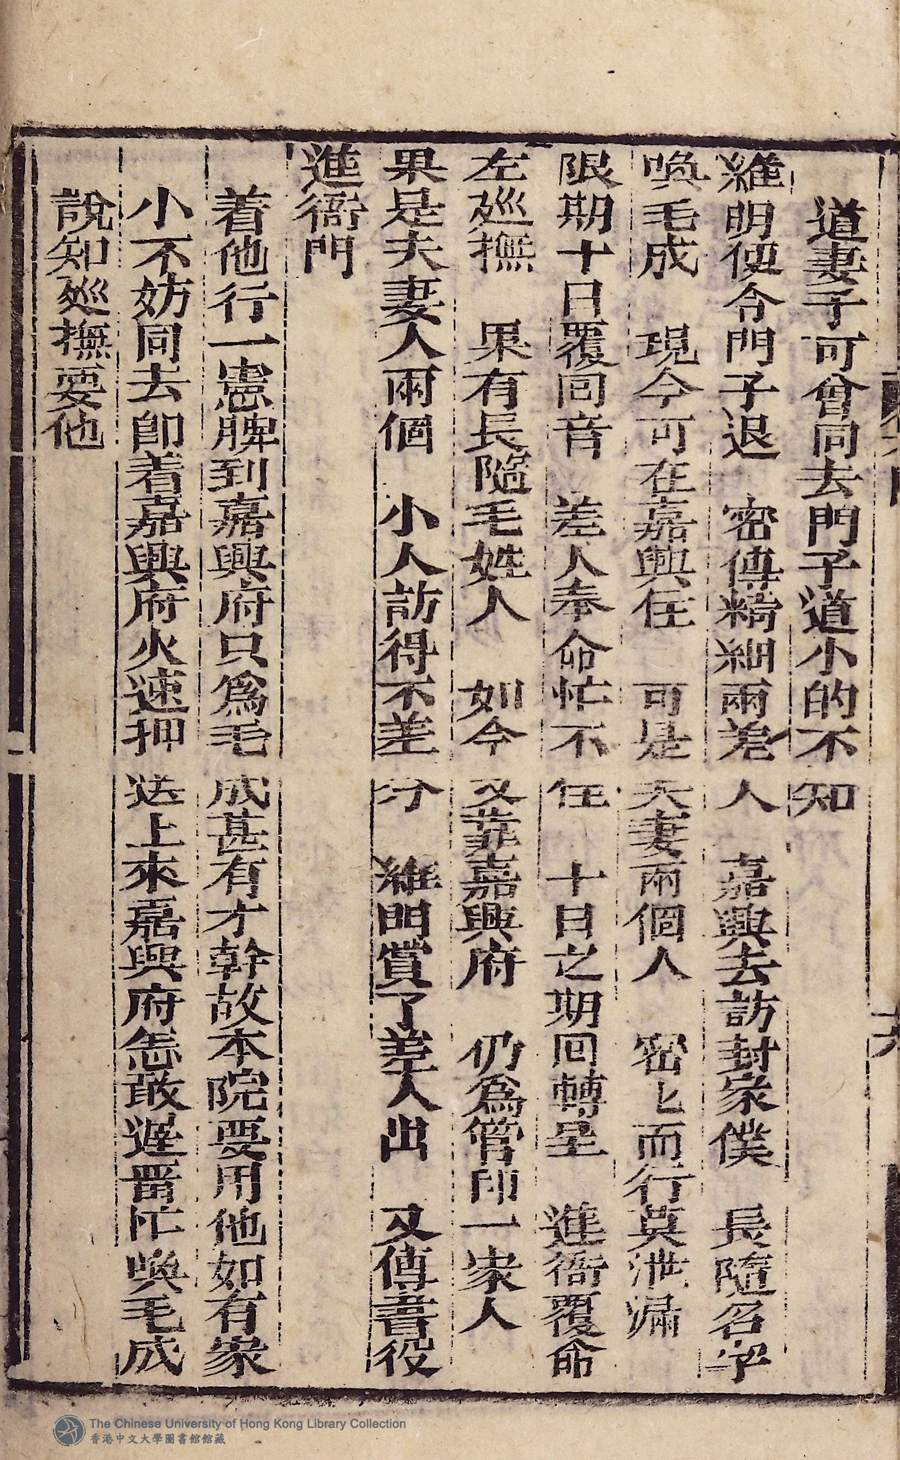 道妻子可曾同去門子道小的不知
維明便令門子退　密傳精細兩差人　嘉興去訪封家僕　長隨名字
喚毛成　現今可在嘉興住　可是夫妻兩個人　密匕而行莫泄漏
限期十日覆回音　差人奉命忙不住　十日之期回轉呈　進衙覆命
左廵撫　果有長隨毛姓人　如今又靠嘉興府　仍爲管印一家人
果是夫妻人兩個　小人訪得不差分　維明賞了差人出　又傳書役
進衙門
着他行一憲牌到嘉興府只爲毛成甚有才幹故本院要用他如有家
小不妨同去卽着嘉興府火速押送上來嘉興府怎敢遲畱忙喚毛成
說知廵撫要他
The Chinese University of Hong Kong Library Collection
香港中文大學圖書館館藏